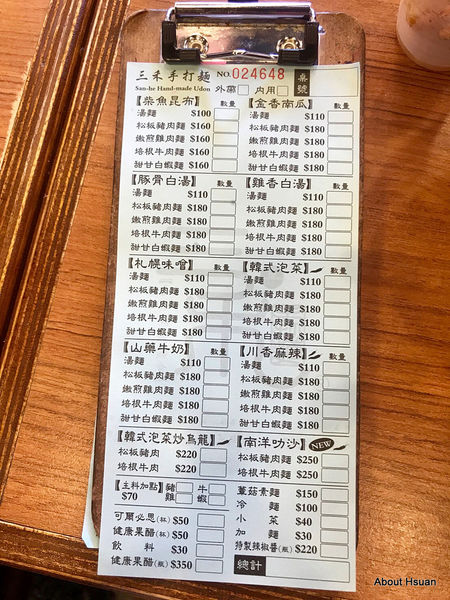 三禾手打麵 NO.024648
San-he Hand-made Udon 外帶 內用 桌號
【柴魚昆布】 數量
湯麵 $100
松板豬肉麵 $160
嫩煎雞肉麵 $160
培根牛肉麵 $160
甜甘白蝦麵 $160
【金香南瓜】 數量
湯麵 $110
松板豬肉麵 $180
嫩煎雞肉麵 $180
培根牛肉麵 $180
甜甘白蝦麵 $180
【豚骨白湯】 數量
湯麵 $110
松板豬肉麵 $180
嫩煎雞肉麵 $180
培根牛肉麵 $180
甜甘白蝦麵 $180
【雞香白湯】 數量
湯麵 $110
松板豬肉麵 $180
嫩煎雞肉麵 $180
培根牛肉麵 $180
甜甘白蝦麵 $180
【札幌味噌】 數量
湯麵 $110
松板豬肉麵 $180
嫩煎雞肉麵 $180
培根牛肉麵 $180
甜甘白蝦麵 $180
【韓式泡菜】 數量
湯麵 $110
松板豬肉麵 $180
嫩煎雞肉麵 $180
培根牛肉麵 $180
甜甘白蝦麵 $180
【山藥牛奶】 數量
湯麵 $110
松板豬肉麵 $180
嫩煎雞肉麵 $180
培根牛肉麵 $180
甜甘白蝦麵 $180
【川香麻辣】 數量
湯麵 $110
松板豬肉麵 $180
嫩煎雞肉麵 $180
培根牛肉麵 $180
甜甘白蝦麵 $180
【韓式泡菜炒烏龍】
松板豬肉 $220
培根牛肉 $220
【南洋叻沙】 NEW
松板豬肉麵 $250
培根牛肉麵 $250
【主料加點】 豬 牛
$70 雞 蝦
可爾必思(杯) $50
健康果醋(杯) $50
飲料 $30
健康果醋(瓶) $350
蕈菇素麵 $150
冷麵 $100
小菜 $40
加麵 $30
特製辣椒醬(瓶) $220
總計
About Hsuan